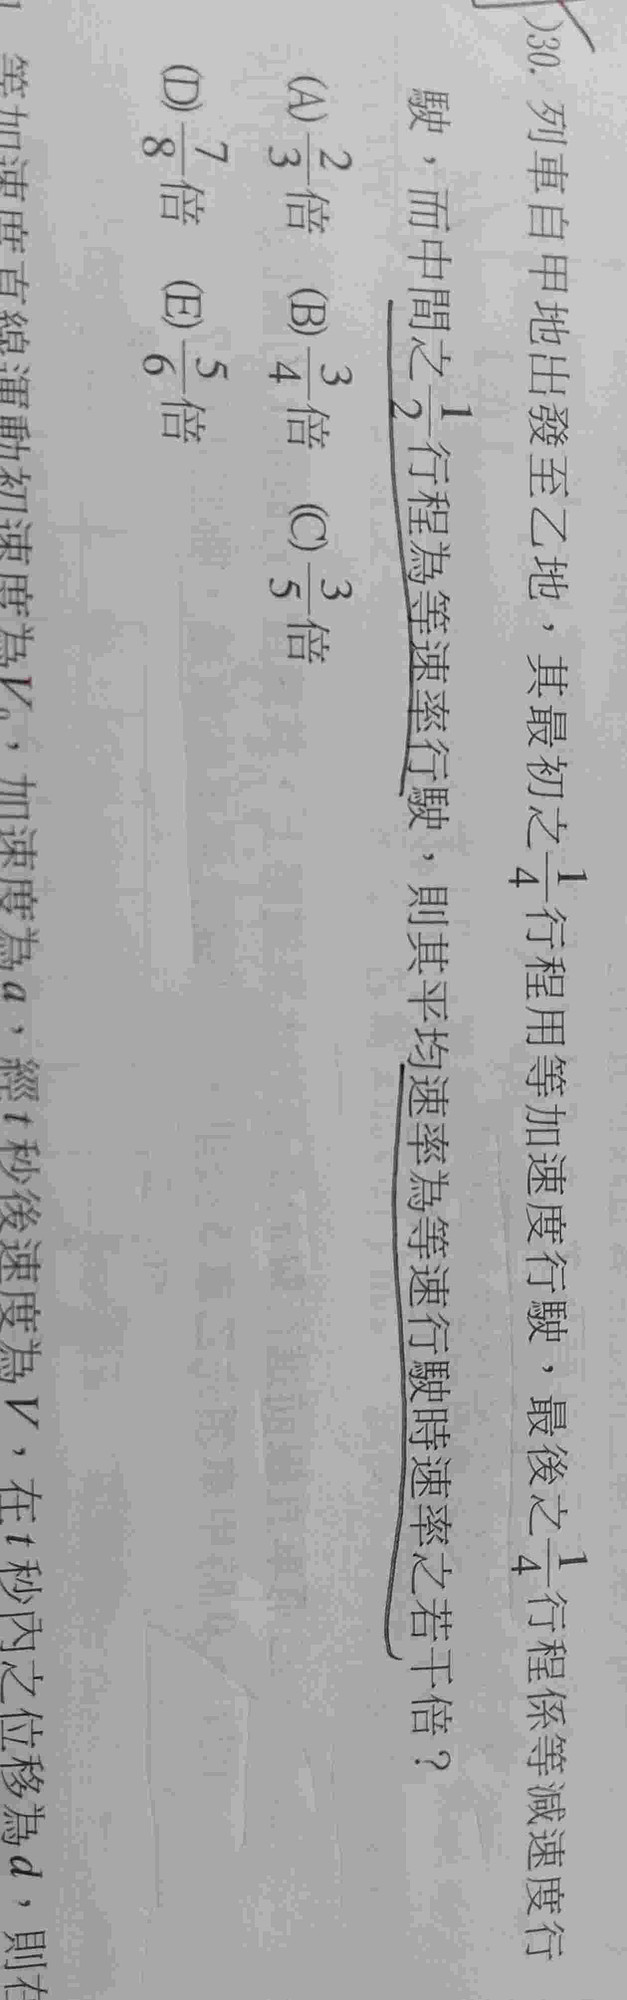 )30. 列車自甲地出發至乙地，其最初之1/4行程用等加速度行駛，最後之1/4行程係等減速度行
駛，而中間之1/2行程為等速率行駛，則其平均速率為等速行駛時速率之若干倍？
(A) 2/3倍 (B) 3/4倍 (C) 3/5倍
(D) 7/8倍 (E) 5/6倍
等加速度直線運動初速度為V₀，加速度為a，經t秒後速度為V，在t秒內之位移為d，則在